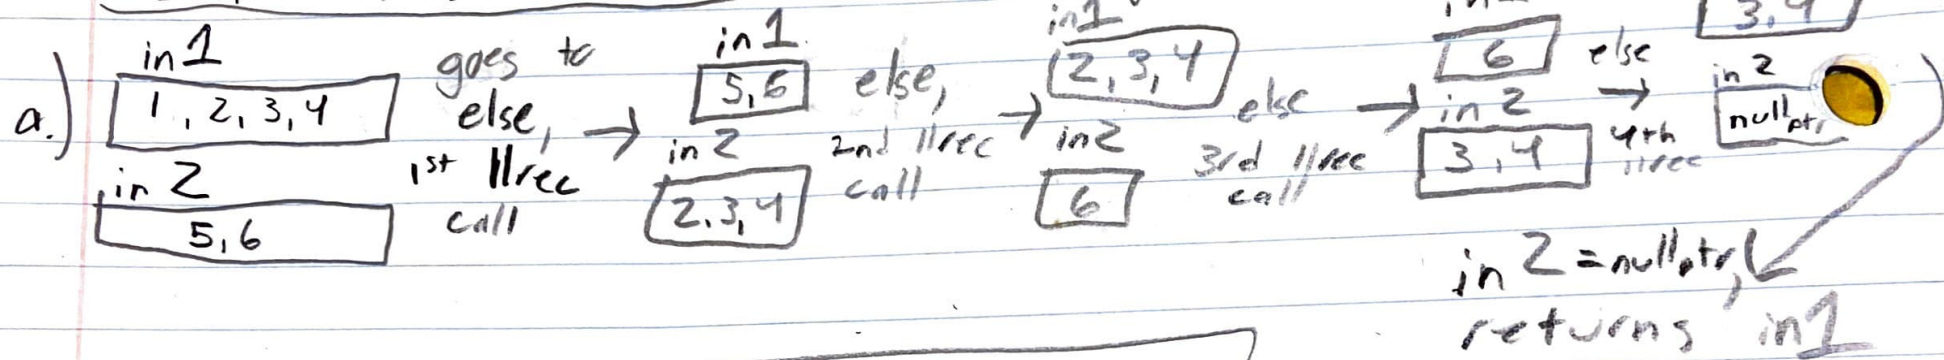 a.) in1
1, 2, 3, 4
in 2
5, 6
goes to
else,
1st llrec
call
→
in1
5,6
in 2
2,3,4
else,
2nd llrec
call
→
in1
2,3,4
in2
6
else
3rd llrec
call
→
6
in 2
3,4
else
→
4th
llrec
3,4
in 2
nullptr
in 2 = nullptr,
returns in1